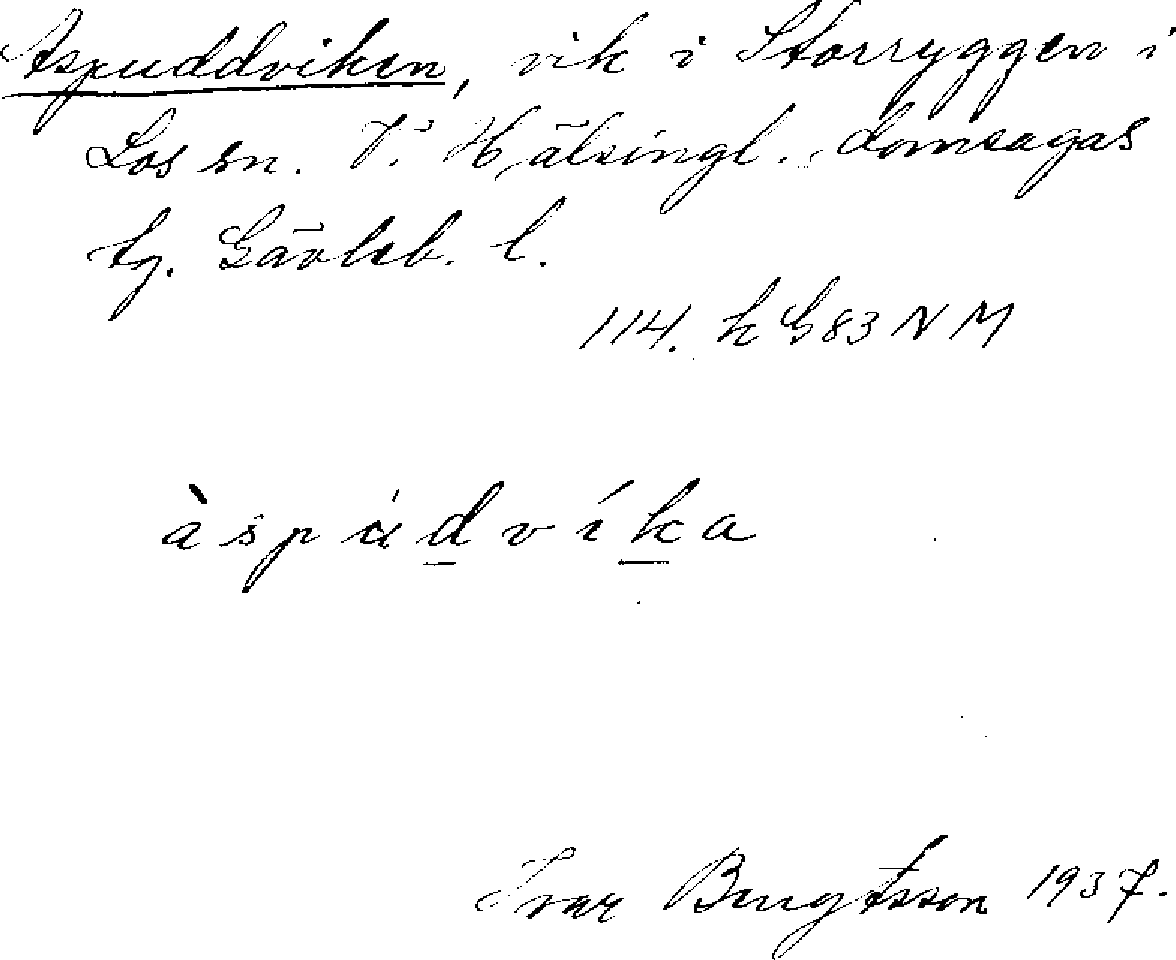 Aspuddviken, vik i Storryggen i
Los sn. V. Hälsingl. domsagas
tg. Gävleb. l.
114. k G83 NM
àspu̇dvíka
Ivar Bengtsson 1937.